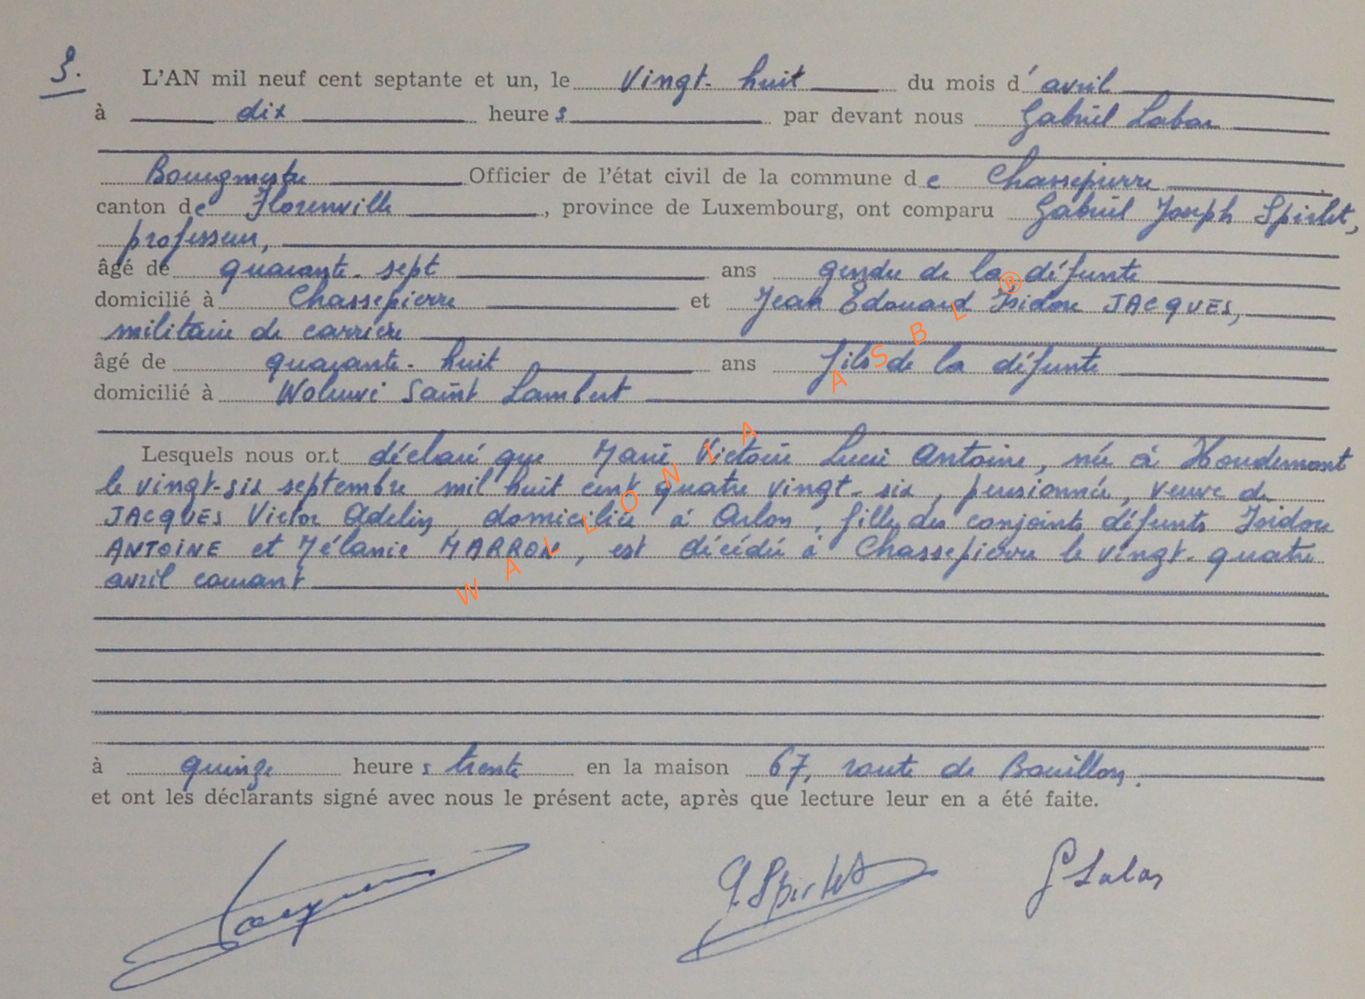 3.
L'AN mil neuf cent septante et un, le vingt-huit du mois d'avril
à dix heures par devant nous Gabriel Labar
Bourgmestre Officier de l'état civil de la commune de Chassepierre
canton de Florenville, province de Luxembourg, ont comparu Gabriel Joseph Spirlet,
professeur,
âgé de quarante-sept ans gendre de la défunte
domicilié à Chassepierre et Jean Edouard Isidore JACQUES,
militaire de carrière
âgé de quarante-huit ans fils de la défunte
domicilié à Woluwé Saint Lambert
Lesquels nous ont déclaré que Marie Victoire Lucie Antoine, née à Houdemont
le vingt-six septembre mil huit cent quatre vingt-six, pensionnée, veuve de
JACQUES Victor Adelin, domiciliée à Arlon, fille des conjoints défunts Isidore
ANTOINE et Mélanie MARRON, est décédée à Chassepierre le vingt-quatre
avril courant
à quinze heures trente en la maison 67, route de Bouillon.
et ont les déclarants signé avec nous le présent acte, après que lecture leur en a été faite.
Jacques G. Spirlet G Labar
WALLONIA ASBL ®